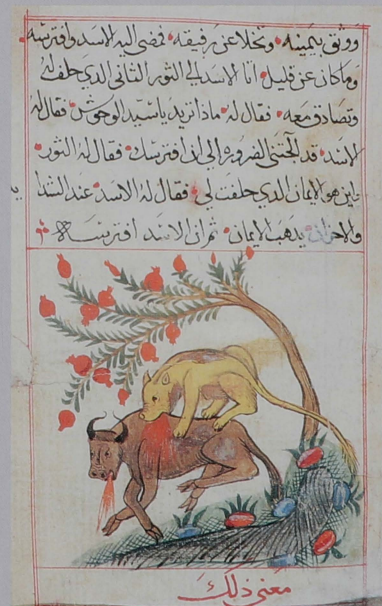 ووثق بيمينه وتخلا عن رفيقه فمضى اليه الاسد وافترسه
وما كان عن قليل انا الاسد الي الثور الثاني الذي حلف له
وتصادق معه فقال له ماذا تريد يا سيد الوحوش فقال له
الاسد قد الجتني الضروره الى ان افترسك فقال له الثور
اين هو الايمان الذي حلفت لي فقال له الاسد عند الشدا
والاحزان يذهب الايمان ثم ان الاسد افترسه
معنى ذلك